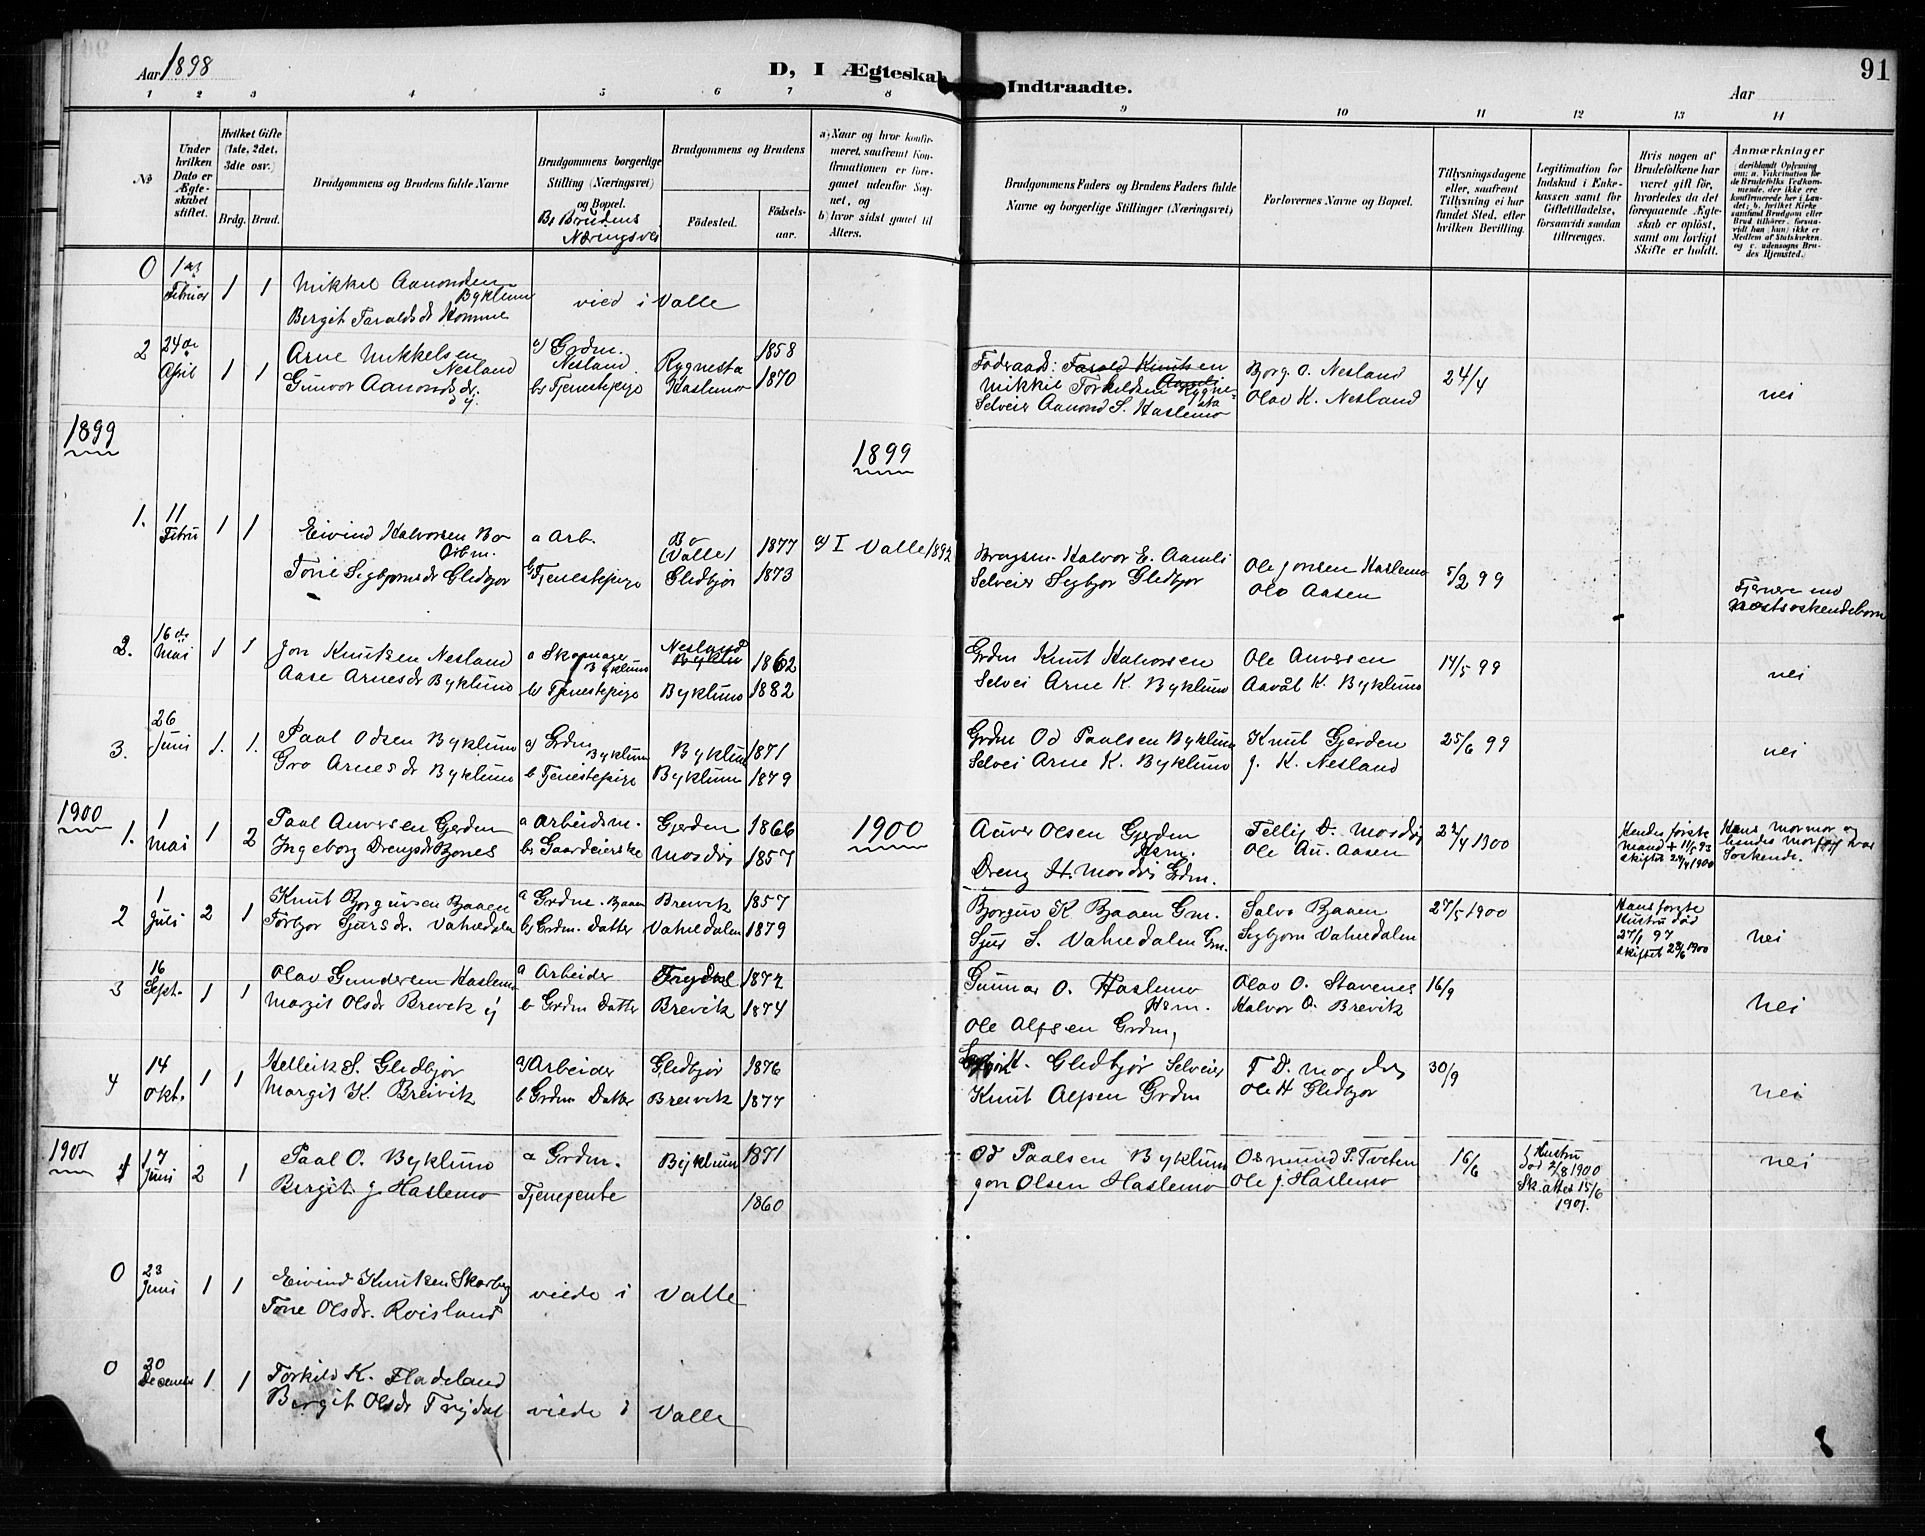 Aar 1898
D, I Ægteskab
Indtraadte.
Aar
91
1 2 3 4 5 6 7 8 9 10 11 12 13 14
No
Under hvilken Dato er Ægteskabet stiftet.
Hvilket Gifte (1ste, 2det, 3die osv.)
Brdg. Brud.
Brudgommens og Brudens fulde Navne
Brudgommens borgerlige Stilling (Næringsvei) og Bopæl.
B. Brudens Næringsvei
Brudgommens og Brudens
Fødested. Fødselsaar.
a) Naar og hvor konfirmeret, saafremt Konfirmationen er foregaaet udenfor Sognet, og
b) hvor sidst gaaet til Alters.
Brudgommens Faders og Brudens Faders fulde Navne og borgerlige Stillinger (Næringsvei)
Forlovernes Navne og Bopæl.
Tillysningsdagene eller, saafremt Tillysning ei har fundet Sted, efter hvilken Bevilling.
Legitimation for Indskud i Enkekassen samt for Giftetilladelse, forsaavidt saadan tiltrænges.
Hvis nogen af Brudefolkene har været gift før, hvorledes da det foregaaende Ægteskab er opløst, samt om lovligt Skifte er holdt.
Anmærkninger
0 1ste Februar 1 1 Mikkel Aanondsen Byklum vied i Valle
Bergit Taraldsdr Homme
2 24de April 1 1 Arne Mikkelsen Nesland a) Grdm. Nesland Rygnesta 1858 Føderaad: Tarald Knutsen Bjørg. O. Nesland 24/4 nei
Mikkel Torkildsen Rygnesta
Gunvor Aanondsdr. b) Tjenestepige Haslemo 1870 Selveier Aanond S. Haslemo Olav K. Nesland
1899 1899
1. 11 Febru 1 1 Eivind Halvorsen Bø a Arb. Bø (Valle) 1877 a) I Valle 1892 Halvor E. Aamli Ole Jonsen Haslemo 5/2 99
Arbm.
Tone Sigbjørnsdr Gledbjør b Tjenestepige Gledbjør 1873 Selveier Sigbjør Gledbjør Olv Aasen Fjernere end næstsøskendebørn
2. 16de Mai 1 1 Jon Knutsen Nesland a Byklum Nesland 1862 Grdm Knut Halvorsen Ole Auversen 14/5 99 nei
Aase Arnesdr Byklum b) Tjenestepige Byklum 1882 Selvei Arne K. Byklum Aavål K. Byklum
3. 26 Juni 1. 1. Paal Odsen Byklum a) Grdm Byklum Byklum 1871 Grdm Od Paalsen Byklum Knut Gjerden 25/6 99 nei
Gro Arnesdr Byklum b Tjenestepige Byklum 1879 Selvei Arne K. Byklum J. K. Nesland
1900 1. 1 Mai 1 2 Paal Auversen Gjerden a Arbeidsm. Gjerden 1866 1900 Auver Olsen Gjerden Hsm. Tellef D. Mosdøl 22/4 1900 Hendes første mand + 11/5 93 skiftet 24/4 1900 Hans mormor og hendes morfar var Søskende.
Ingeborg Drengsdr Bjones b) Gaardeierske Mosdøl 1857 Dreng H. Mosdøl Grdm. Ole Au. Aasen
2 1 Juli 2 1 Knut Bjørguvsen Bjaaen a Grdm. Bjaaen Breivik 1857 Bjørguv K Bjaaen Gm. Salve Bjaaen 27/5 1900 Hans første Hustru død 27/1 97 skiftet 28/6 1900 nei
Torbjør Sjursdr. Vatnedalen b) Grdm. Datter Vatnedalen 1879 Sjur S. Vatnedalen Gm. Sigbjørn Vatnedalen
3 16 Sept. 1 1 Olav Gundersen Haslemo a Arbeider Trydal 1872 Gunnar O. Haslemo Hsm. Olav O. Stavenes 16/9 nei
Margit Olsdr Breivik b Grdm Datter Breivik 1874 Ole Alfsen Grdm, Halvor O. Breivik
4 14 Okt. 1 1 Helleik S. Gledbjør a) Arbeider Gledbjør 1876 H. Gledbjør Selveier T D. Mosdøl 30/9 nei
Margit K. Breivik b Grdm Datter Breivik 1877 Knut Alfsen Grdm Ole H Gledbjør
1901 1 17 Juni 2 1 Paal O. Byklum a Grdm. Byklum 1871 Od Paalsen Byklum Osmund P. Tveten 16/6 1 Hustru død 2/8 1900 Sk.attes 15/6 1901. nei
Bergit J. Haslemo Tjenejente 1860 Jon Olsen Haslemo Ole J. Haslemo
0 23 Juni 1 1 Eivind Knutsen Skarberg viede i Valle
Tone Olsdr. Roisland
0 20 December 1 1 Torkild K. Fladeland
Bergit Olsdr Trydal viede i Valle